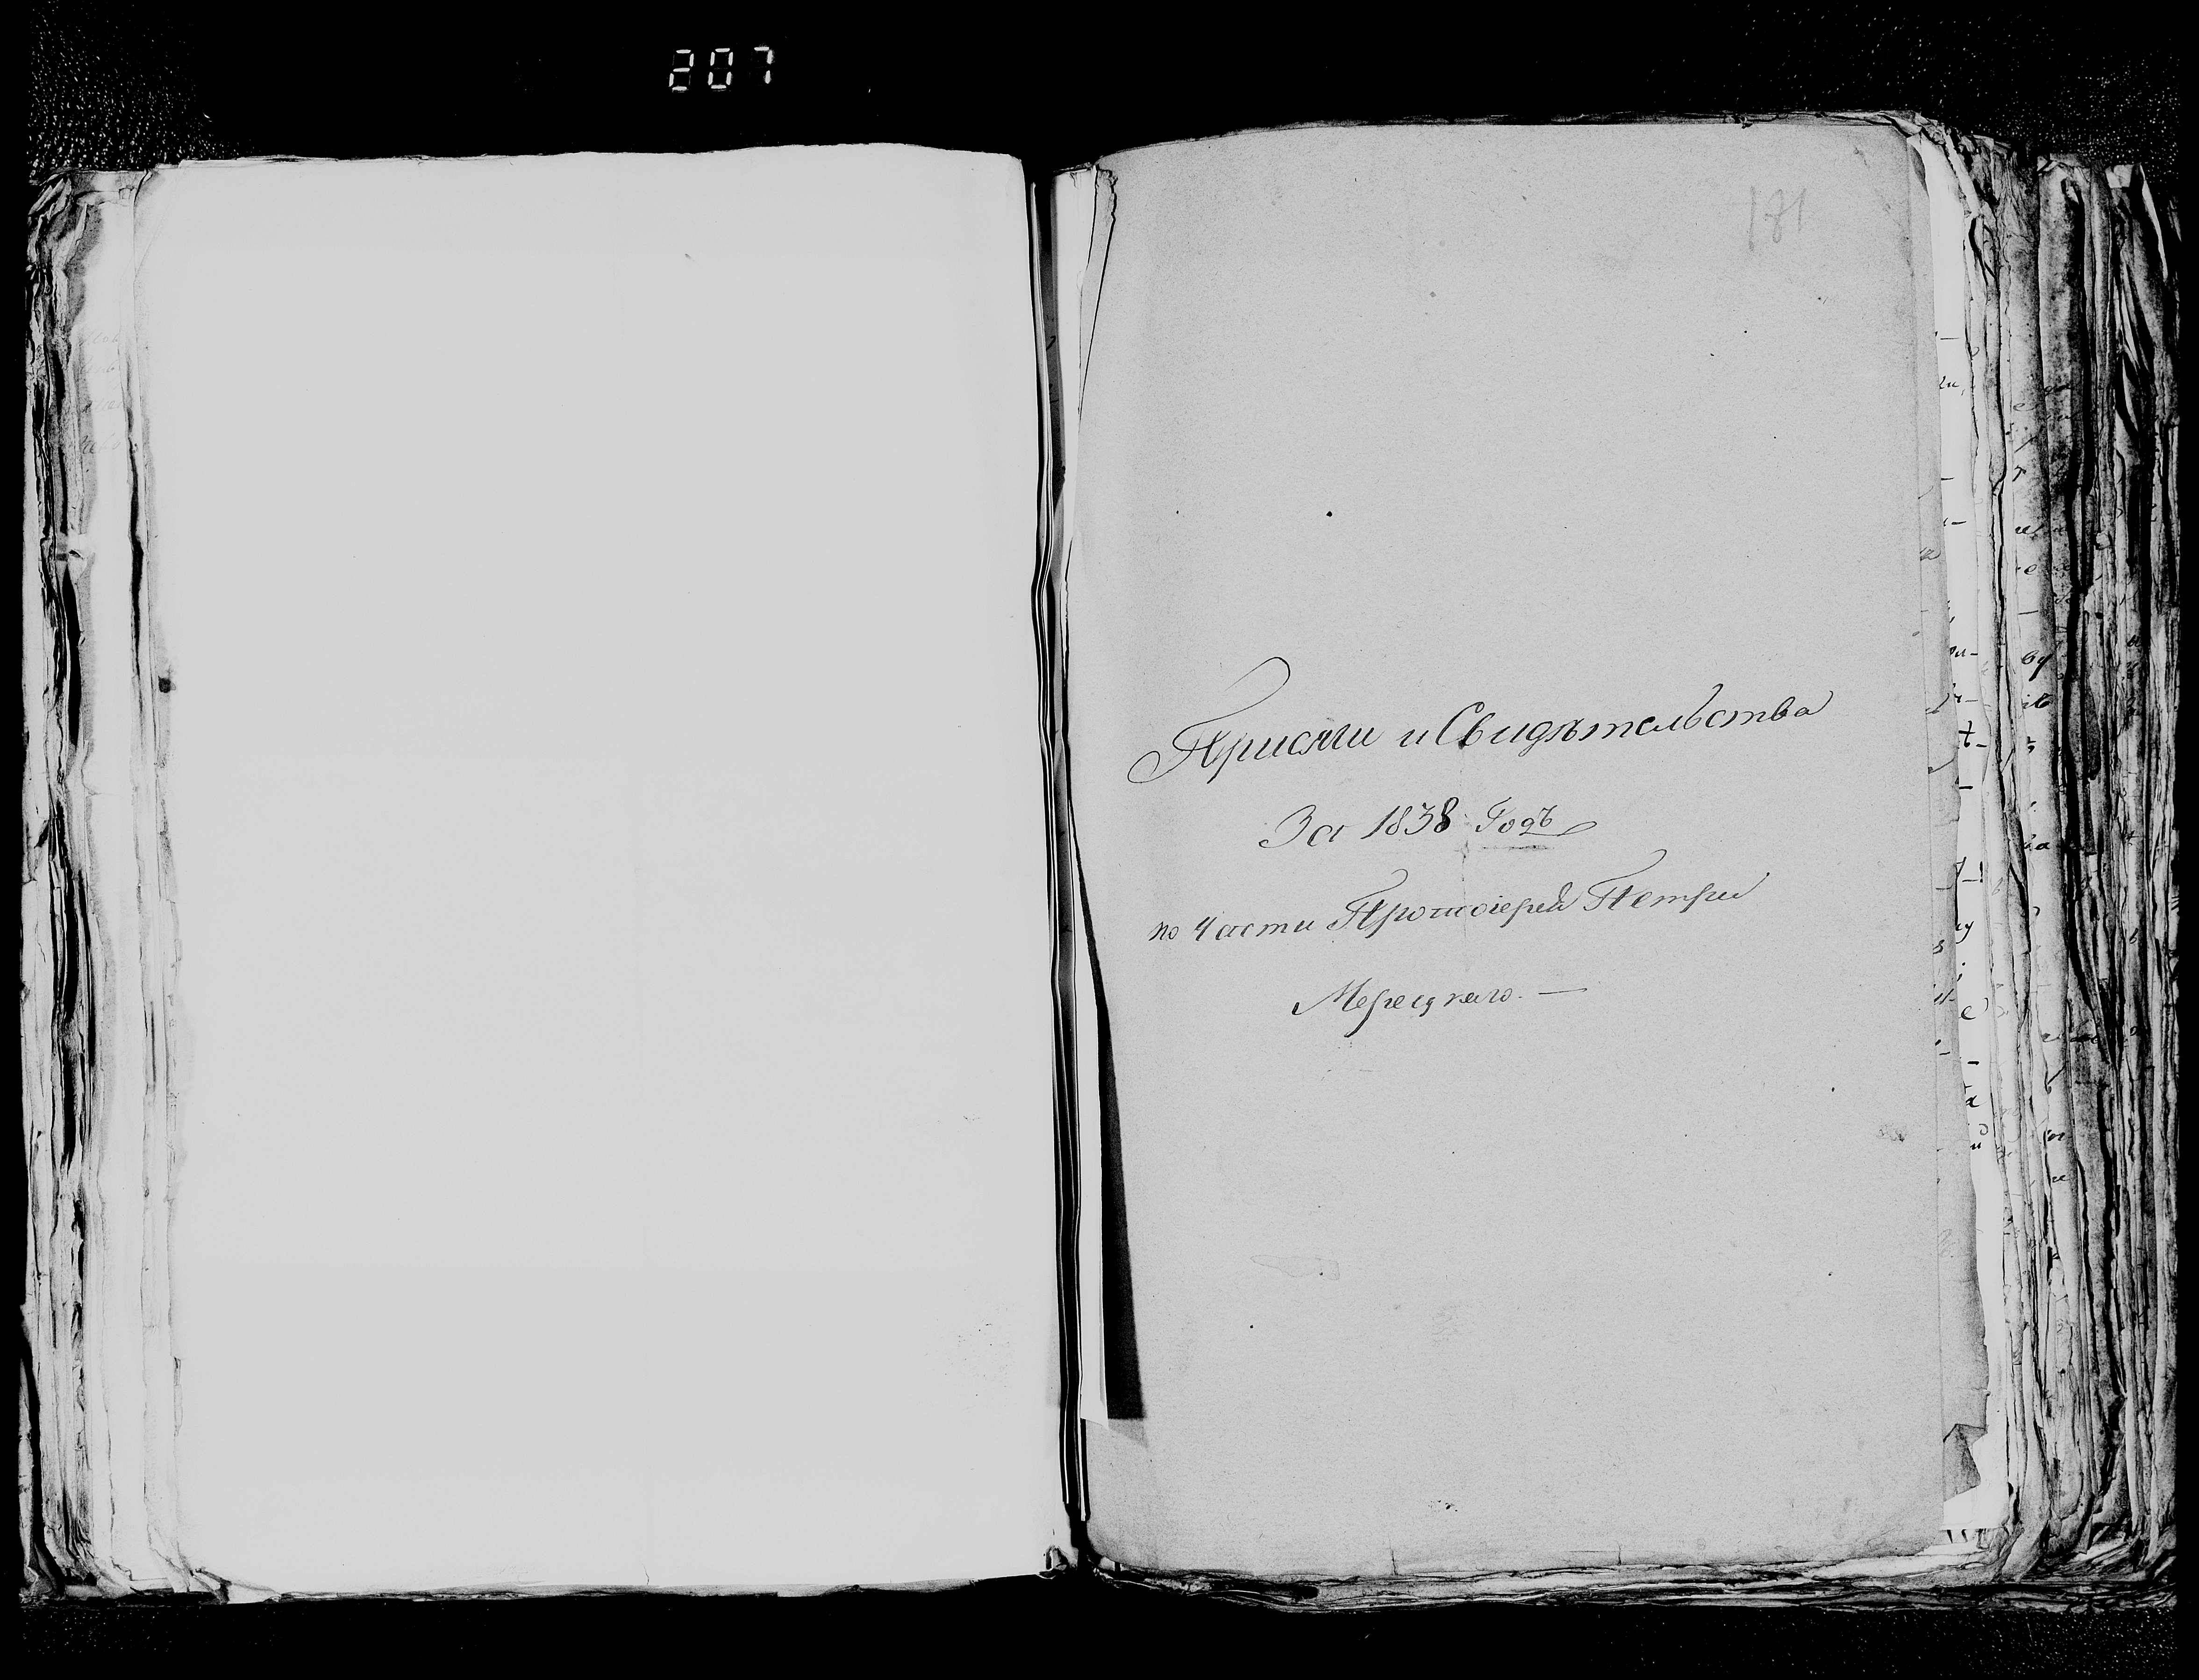 207
181
Присяги и Свидѣтельства
За 1838 Годъ
по Части Протоіерея Петра